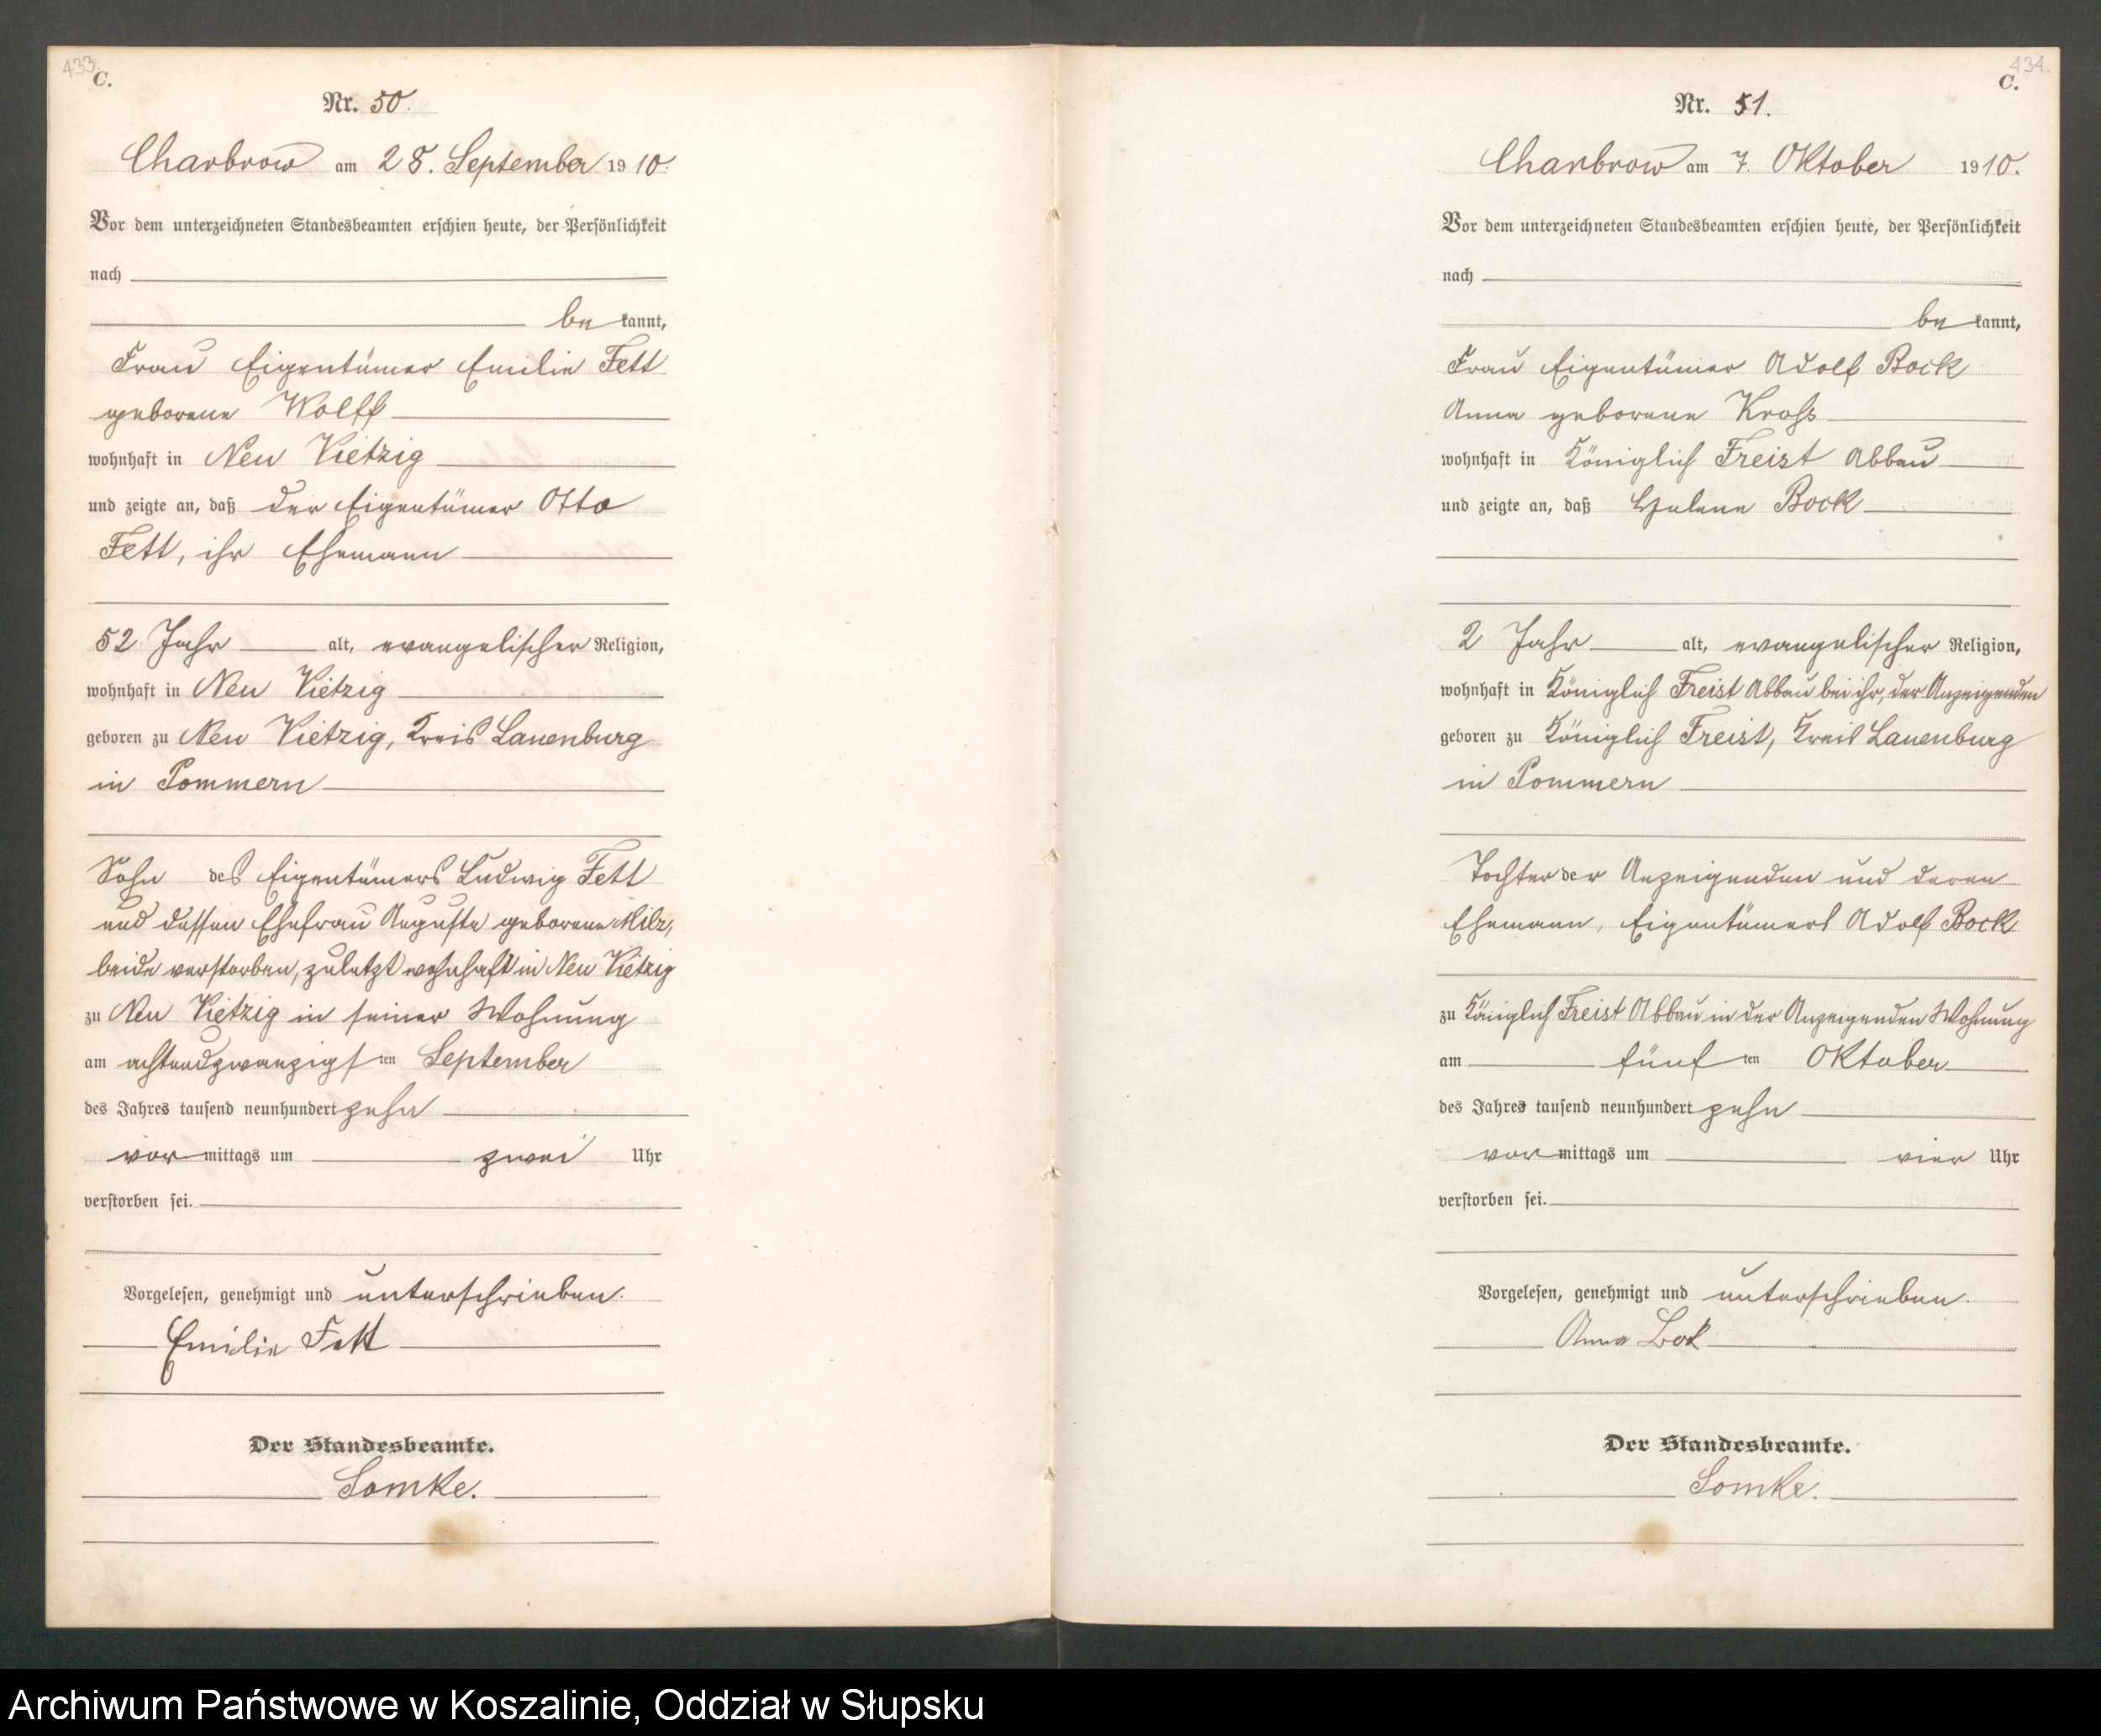 433.
C.
Nr. 50.
Charbrow am 28. September 1910.
Vor dem unterzeichneten Standesbeamten erschien heute, der Persönlichkeit
nach
be kannt,
Frau Eigentümer Emilie Fett
geborene Wolff
wohnhaft in Neu Vietzig
und zeigte an, daß der Eigentümer Otto
Fett, ihr Ehemann
52 Jahr alt, evangelischer Religion,
wohnhaft in Neu Vietzig
geboren zu Neu Vietzig, Kreis Lauenburg
in Pommern
Sohn des Eigentümers Ludwig Fett
und dessen Ehefrau Auguste geborene Milz,
beide verstorben, zuletzt wohnhaft in Neu Vietzig
zu Neu Vietzig in seiner Wohnung
am achtundzwanzigsten September
des Jahres tausend neunhundert zehn
vor mittags um zwei Uhr
verstorben sei.
Vorgelesen, genehmigt und unterschrieben.
Emilie Fett
Der Standesbeamte.
Somke.
434.
C.
Nr. 51.
Charbrow am 7. Oktober 1910.
Vor dem unterzeichneten Standesbeamten erschien heute, der Persönlichkeit
nach
be kannt,
Frau Eigentümer Adolf Bock
Anna geborene Kross
wohnhaft in Königlich Freist Abbau
und zeigte an, daß Helene Bock
2 Jahr alt, evangelischer Religion,
wohnhaft in Königlich Freist Abbau bei ihr, der Anzeigenden
geboren zu Königlich Freist, Kreis Lauenburg
in Pommern
Tochter der Anzeigenden und deren
Ehemann, Eigentümers Adolf Bock
zu Königlich Freist Abbau in der Anzeigenden Wohnung
am fünften Oktober
des Jahres tausend neunhundert zehn
vor mittags um vier Uhr
verstorben sei.
Vorgelesen, genehmigt und unterschrieben.
Anna Bok
Der Standesbeamte.
Somke.
Archiwum Państwowe w Koszalinie, Oddział w Słupsku